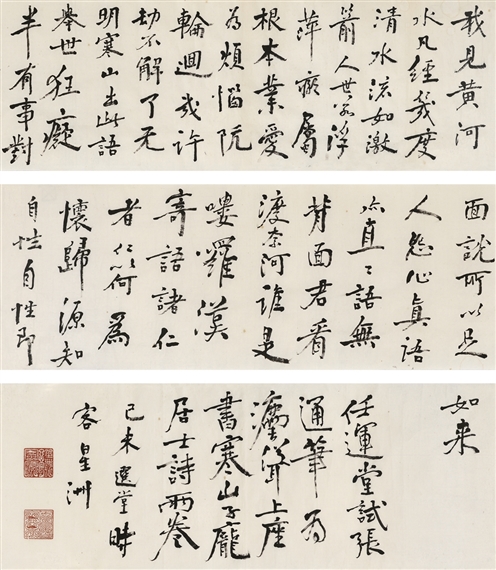 我見黄河
水凡經幾度
清水流如激
箭人世若浮
萍癡屬
根本業愛
為煩惱阬
輪迴幾許
劫不解了无
明寒山出此語
舉世狂癡
半有事對
面說所以足
人怨心真語
亦直〻語無
背面君看
渡奈河誰是
嘍羅漢
寄語諸仁
者仁以何為
懷歸源知
自性自性即
如来
任運堂試張
通筆為
上座
書寒山子龐
居士詩兩卷
己未選堂時
客星洲